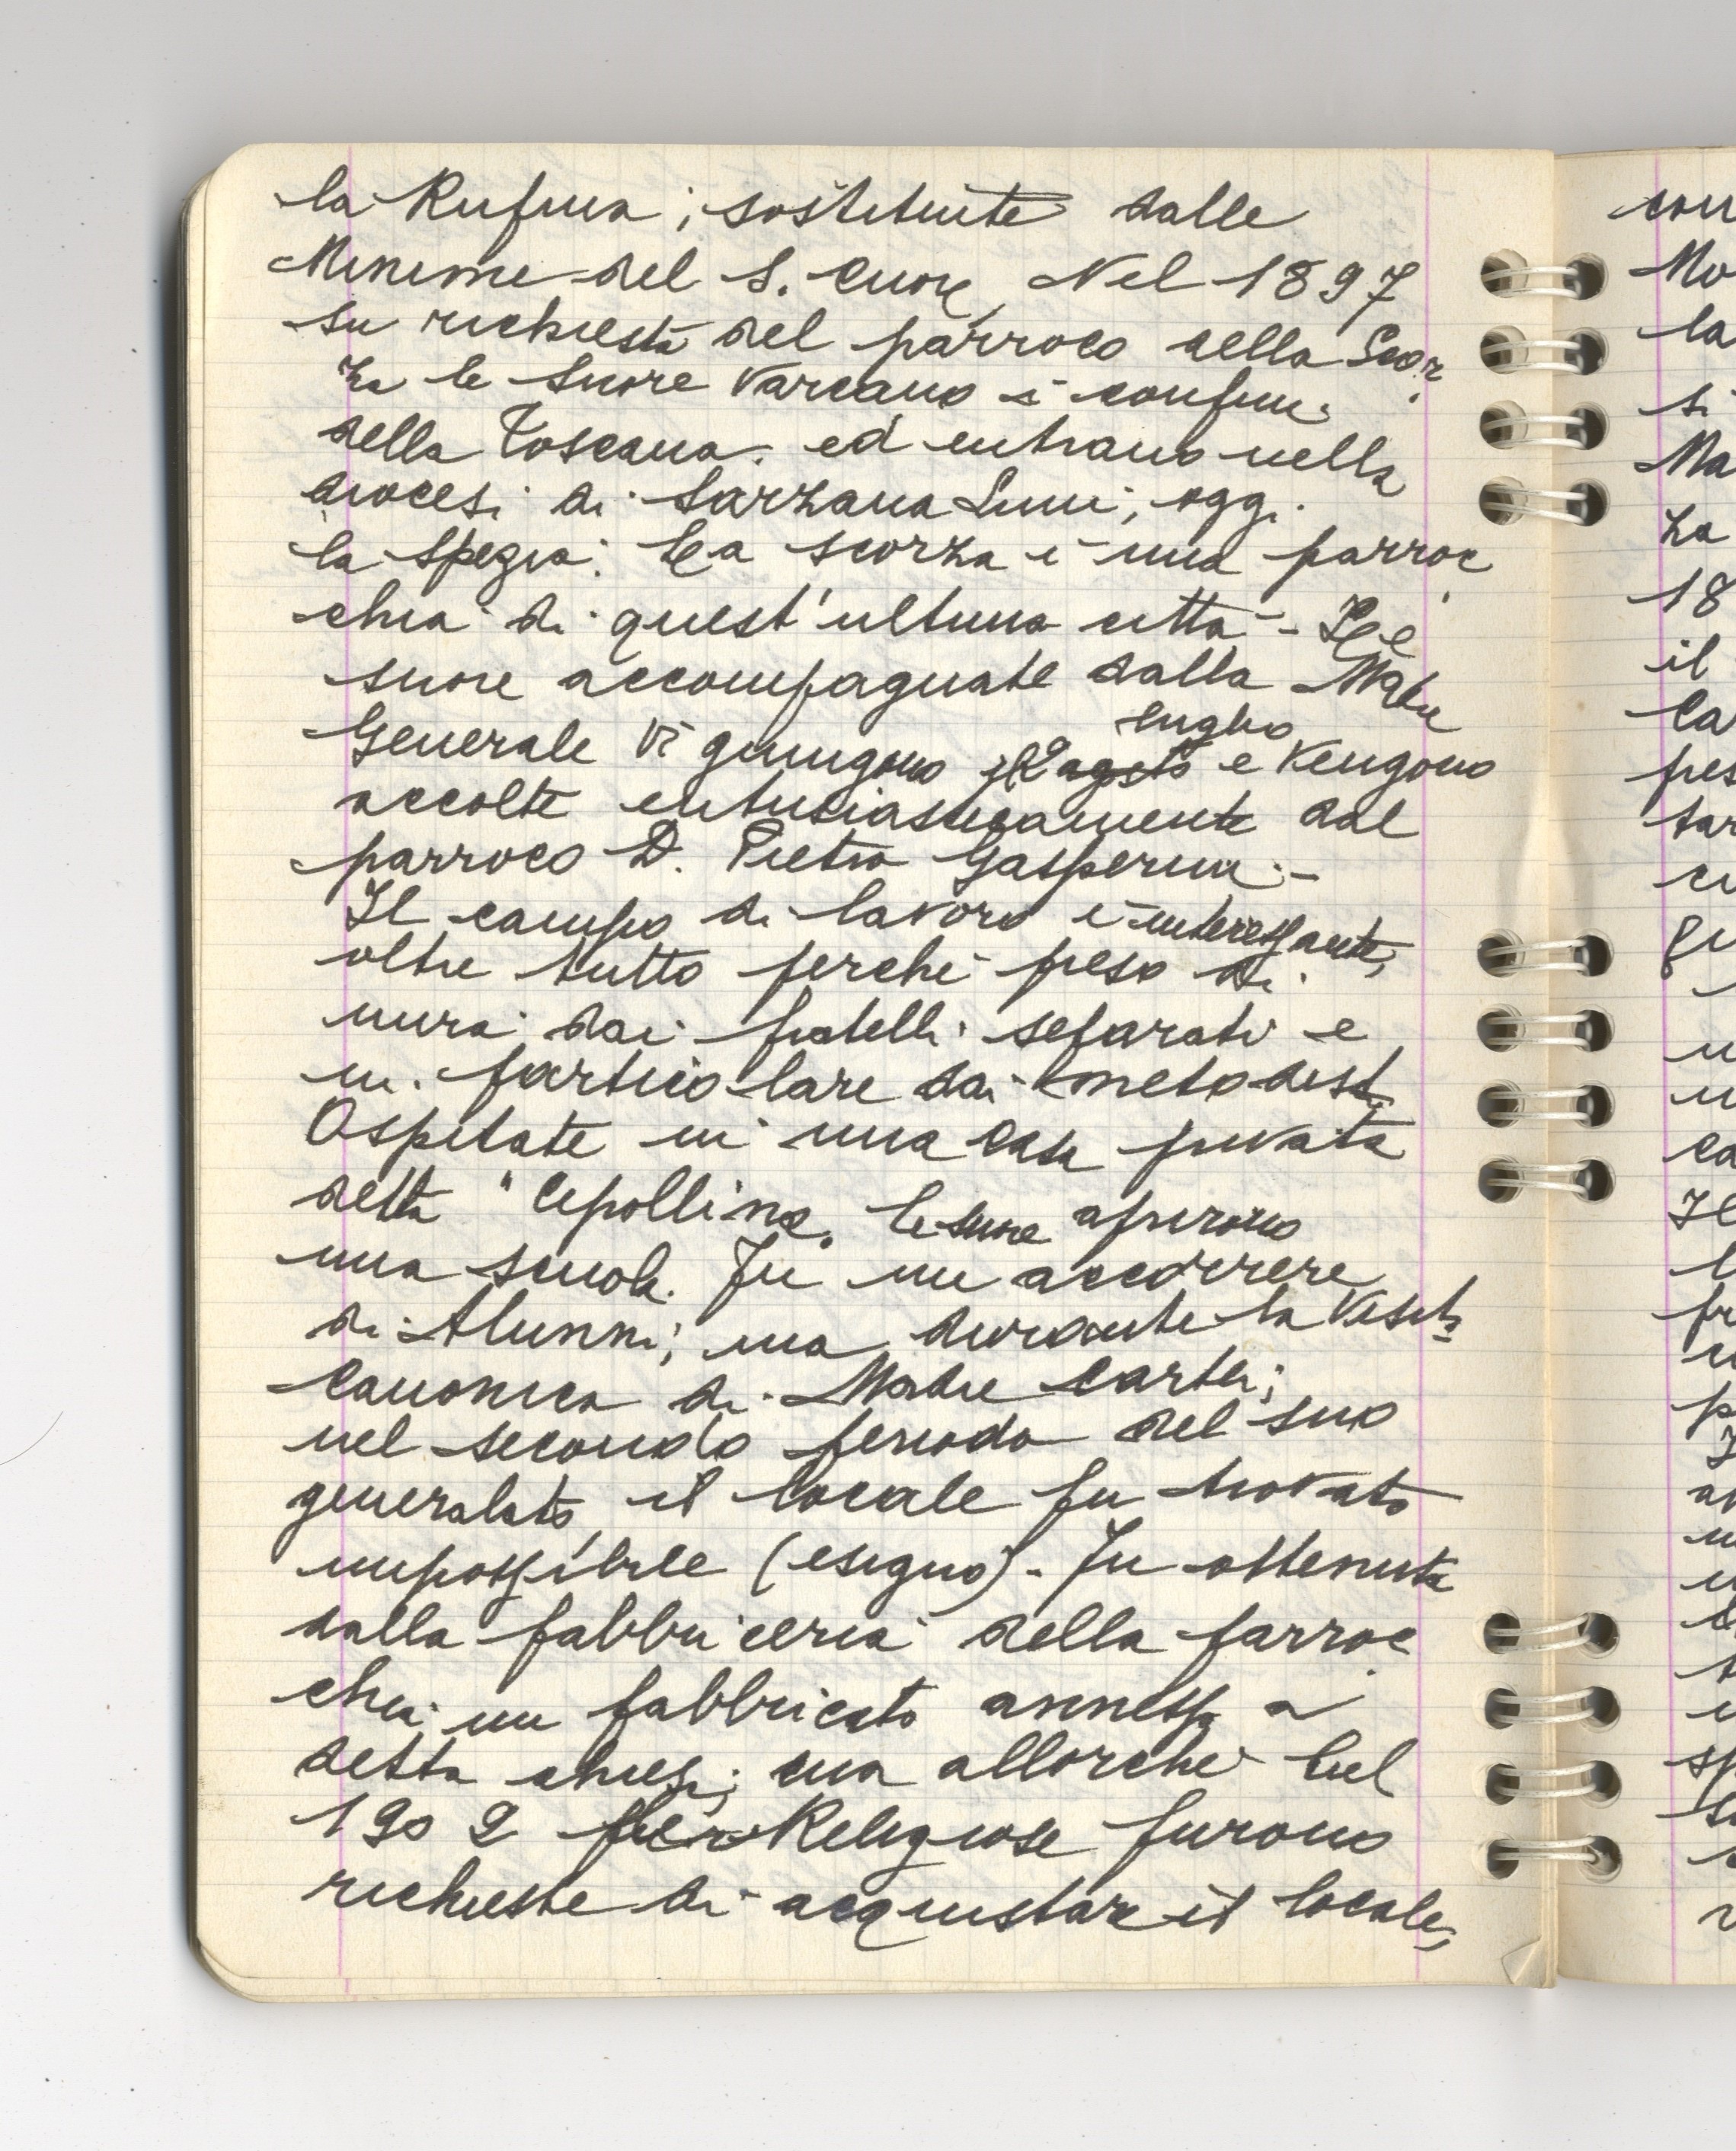 la Rufina; sostituite dalle
Minime del S. Cuore, Nel 1897
su richiesta del parroco della Scor
za le Suore varcano i confini
della Toscana. ed entrano nella
diocesi di Sarzana Luni, oggi
la Spezia. La scorza è una parroc
chia di quest'ultima città - Le
suore accompagnate dalla Madre
luglio
Generale vi giungono il 2 agosto e vengono
accolte entusiasticamente dal
parroco D. Pietro Gasperini. -
Il campo di lavoro è interessante,
oltre tutto perchè preso di
mira dai fratelli separati e
in particolare dai metodisti
Ospitate in una casa privata
detta "Cepollina. Le suore aprirono
una scuola. Fu un accorrere
di Alunni; ma durante la Visita
Canonica di Madre Carth;
nel secondo periodo del suo
generalato, il locale fu trovato
impossibile (esiguo) - Fu ottenuta
dalla fabbriceria della parroc
chia, un fabbricato annesso a
detta chiesa; ma allorchè nel
1902 Religiose furono
richieste di acquistare il locale,
con
Mo
la
si
Ma
za
18
il